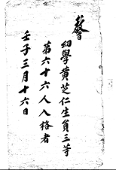 敎
幼學黃芝仁生員三等
第六十六人入格者
壬子三月十六日